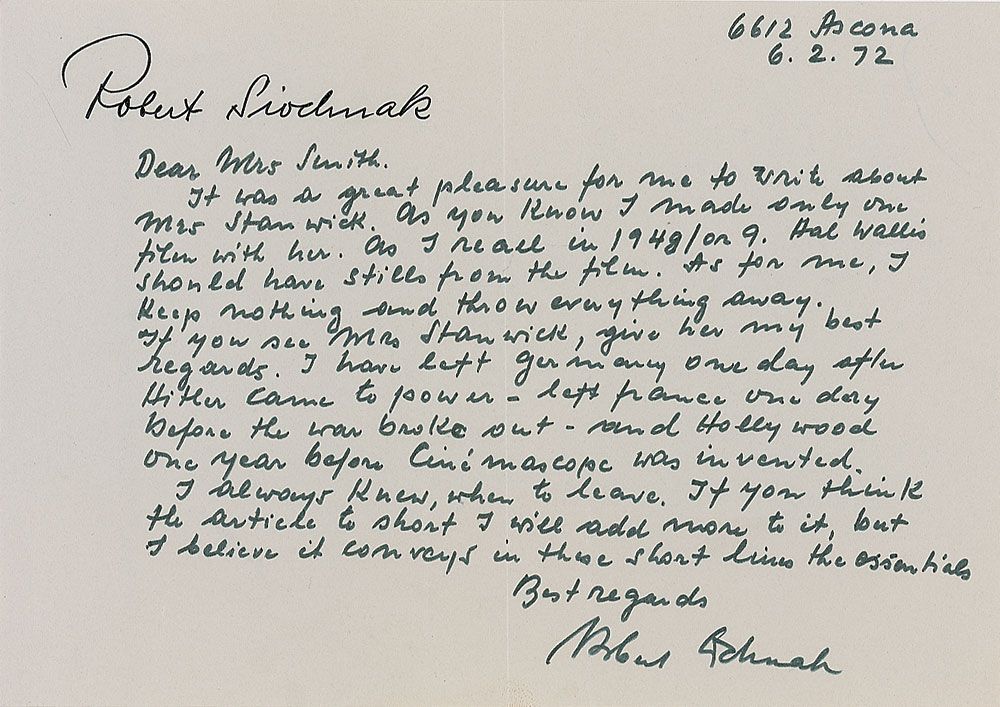 6612 Ascona
6. 2. 72
Robert Siodmak
Dear Mrs Smith.
It was a great pleasure for me to write about
Mrs Stanwick. As you know I made only one
film with her. As I recall in 1948/or 9. Hal Wallis
should have stills from the film. As for me, I
keep nothing and throw everything away.
If you see Mrs Stanwick, give her my best
regards. I have left Germany one day after
Hitler came to power - left france one day
before the war broke out - and Hollywood
one year before Cinémascope was invented.
I always knew, when to leave. If you think
the article to short I will add more to it, but
I believe it conveys in these short lines the essentials
Best regards
Robert Siodmak